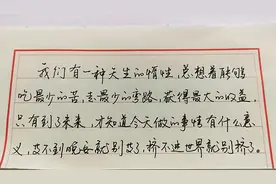 我们有一种天生的惰性，总想着能够
吃最少的苦，走最少的弯路，获得最大的收益。
只有到了未来，才知道今天做的事情有什么意
义，等不到晚安就别等了，挤不进世界就别挤了。